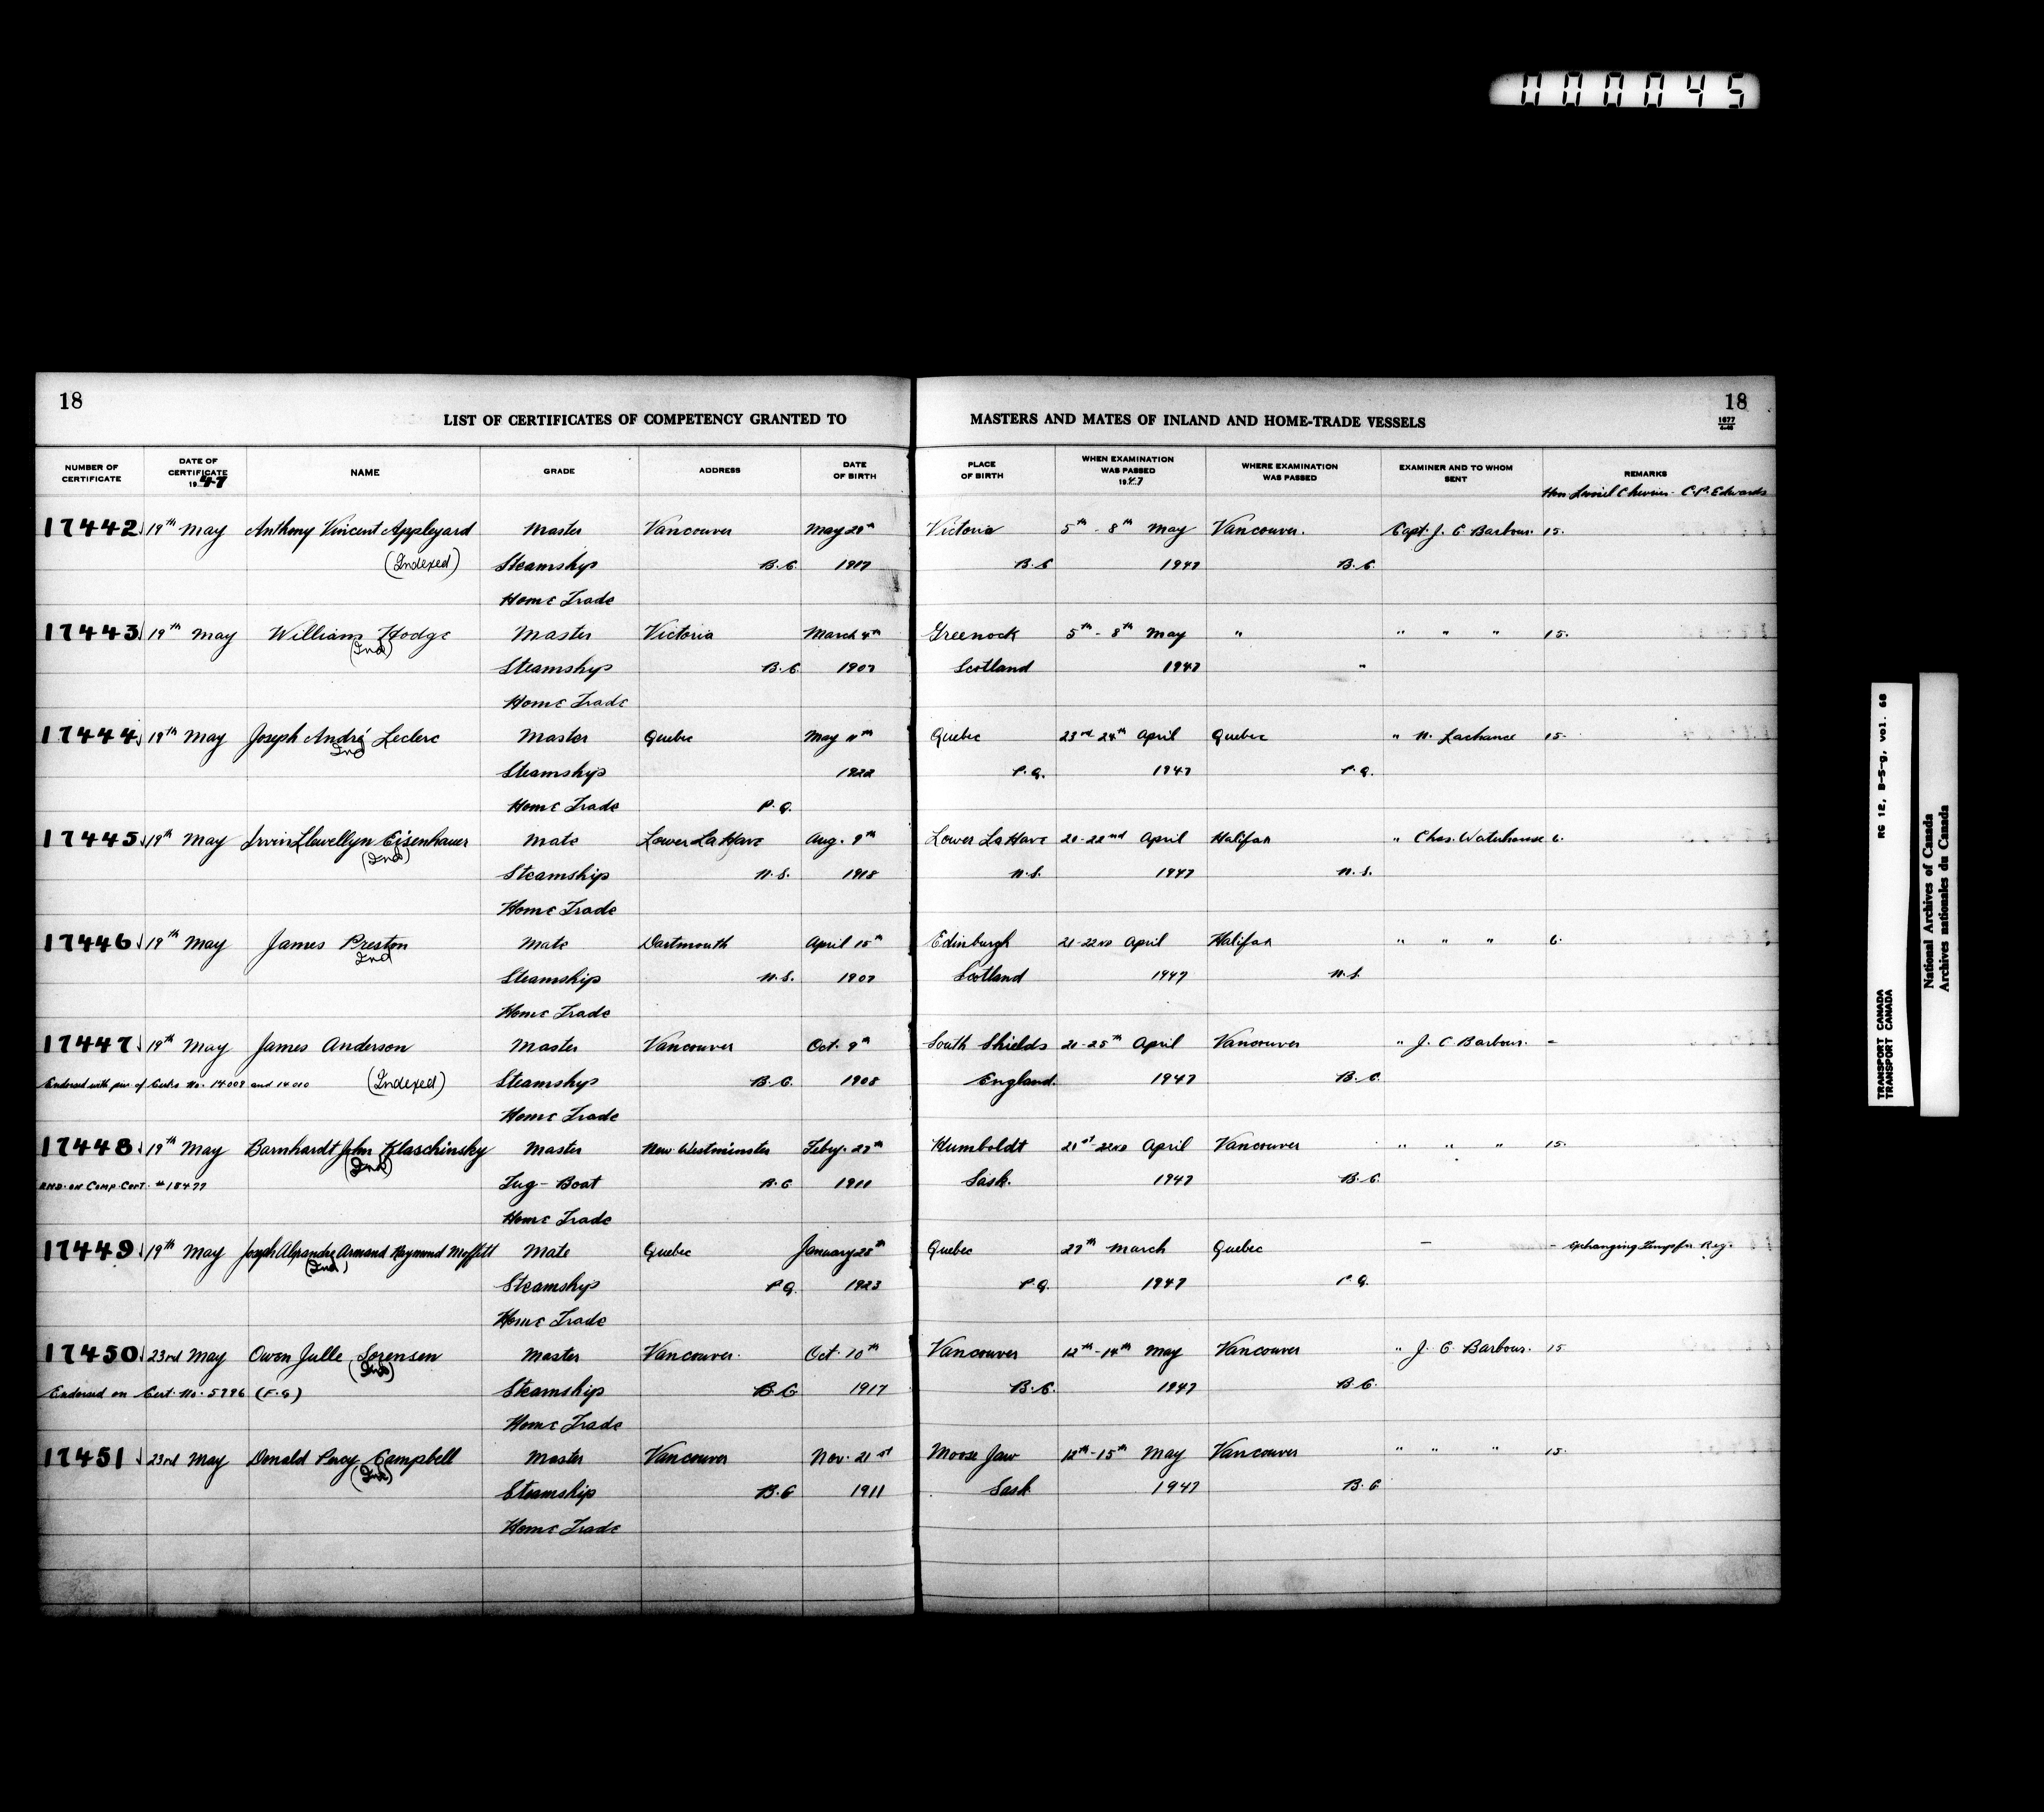 000045
18
18
1677
4-46
LIST OF CERTIFICATES OF COMPETENCY GRANTED TO MASTERS AND MATES OF INLAND AND HOME-TRADE VESSELS
NUMBER OF CERTIFICATE DATE OF CERTIFICATE 1947 NAME GRADE ADDRESS DATE OF BIRTH PLACE OF BIRTH WHEN EXAMINATION WAS PASSED 1947 WHERE EXAMINATION WAS PASSED EXAMINER AND TO WHOM SENT REMARKS
Hon Lionel Chevrier - C.P. Edwards
17442 19th May Anthony Vincent Appleyard Master Vancouver May 20th Victoria 5th - 8th May Vancouver. Capt. J. C. Barbour. 15.
(Indexed) Steamship B.C. 1917 B.C 1947 B.C.
Home Trade
17443 19th May William Hodge Master Victoria March 4th Greenock 5th - 8th May " " " " 15.
(Ind) Steamship B.C. 1907 Scotland 1947 "
Home Trade
17444 19th May Joseph André Leclerc Master Quebec May 11th Quebec 23rd-24th April Quebec " N. Lachance 15.
Ind Steamship 1922 P.Q. 1947 P.Q.
Home Trade P.Q.
17445 19th May Irvin Llewellyn Eisenhauer Mate Lower LaHave Aug. 9th Lower LaHave 20-22nd April Halifax " Chas. Waterhouse 6.
(Ind) Steamship N.S. 1918 N.S. 1947 N.S.
Home Trade
17446 19th May James Preston Mate Dartmouth April 15th Edinburgh 21-22nd April Halifax " " " 6.
Ind Steamship N.S. 1907 Scotland 1947 N.S.
Home Trade
17447 19th May James Anderson Master Vancouver Oct. 9th South Shields 21-25th April Vancouver " J. C Barbour. -
Endorsed with par. of Certs. No. 14009 and 14010 (Indexed) Steamship B.C. 1908 England. 1947 B.C.
Home Trade
17448 19th May Barnhardt John Klaschinsky Master New Westminster Feby. 27th Humboldt 21st-22nd April Vancouver " " " 15.
END. on Comp. Cert. #18477 (Ind) Tug-Boat B.C 1911 Sask. 1947 B.C.
Home Trade
17449 19th May Joseph Alexandre Armand Raymond Moffitt Mate Quebec January 28th Quebec 27th March Quebec - - Exchanging Temp for Reg.
(Ind) Steamship P.Q. 1923 P.Q. 1947 P.Q.
Home Trade
17450 23rd May Owen Julle Sorensen Master Vancouver. Oct. 10th Vancouver 12th-14th May Vancouver " J. C. Barbour. 15
Endorsed on Cert. No. 5796 (F.G) (Ind) Steamship B.C 1917 B.C. 1947 B.C.
Home Trade
17451 23rd May Donald Percy Campbell Master Vancouver Nov. 21st Moose Jaw 12th-15th May Vancouver " " " 15.
(Ind) Steamship B.C 1911 Sask 1947 B.C
Home Trade
RG 12, B-5-g, vol. 68
TRANSPORT CANADA
TRANSPORT CANADA
National Archives of Canada
Archives nationales du Canada